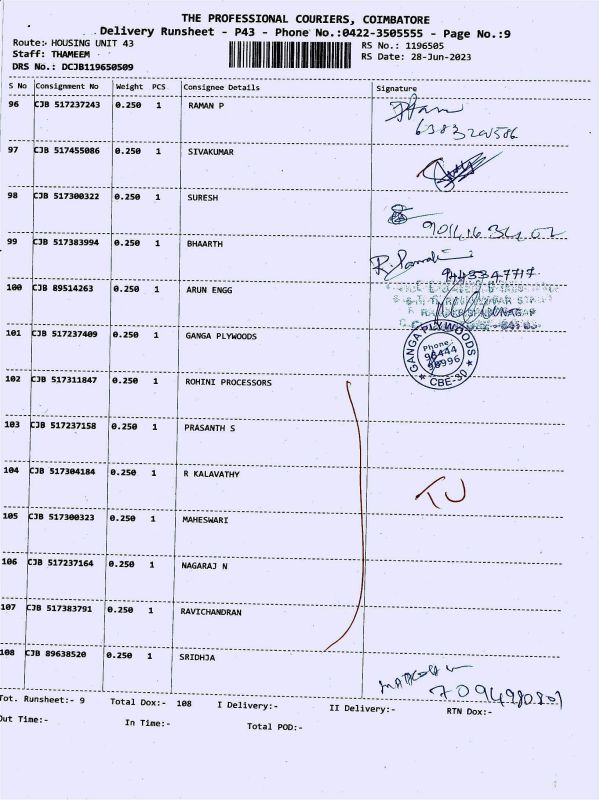 THE PROFESSIONAL COURIERS, COIMBATORE
Delivery Runsheet - P43 - Phone No.:0422-3505555 - Page No.:9
Route:- HOUSING UNIT 43
RS No.: 1196505
Staff: THAMEEM
RS Date: 28-Jun-2023
DRS No.: DCJB119650509
S No Consignment No Weight PCS Consignee Details Signature
96 CJB 517237243 0.250 1 RAMAN P
97 CJB 517455086 0.250 1 SIVAKUMAR
98 CJB 517300322 0.250 1 SURESH
99 CJB 517383994 0.250 1 BHAARTH
9443347717
100 CJB 89514263 0.250 1 ARUN ENGG
101 CJB 517237409 0.250 1 GANGA PLYWOODS
GANGA PLYWOODS
Phone:
96444
96996
★ CBE-30 ★
102 CJB 517311847 0.250 1 ROHINI PROCESSORS
103 CJB 517237158 0.250 1 PRASANTH S
104 CJB 517304184 0.250 1 R KALAVATHY
TU
105 CJB 517300323 0.250 1 MAHESWARI
106 CJB 517237164 0.250 1 NAGARAJ N
107 CJB 517383791 0.250 1 RAVICHANDRAN
108 CJB 89638520 0.250 1 SRIDHJA
Tot. Runsheet:- 9 Total Dox:- 108 I Delivery:- II Delivery:- RTN Dox:-
Out Time:- In Time:- Total POD:-